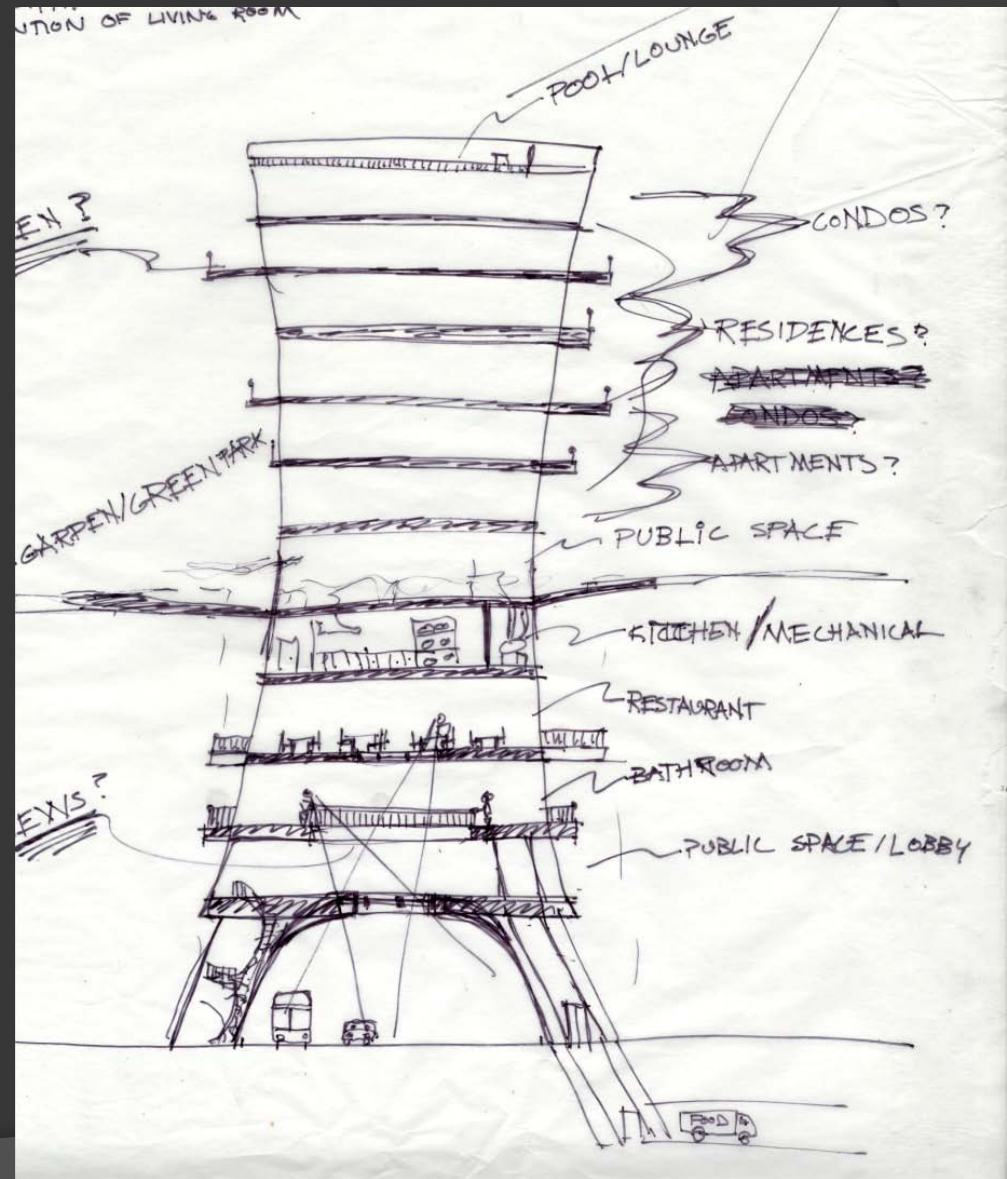 OF LIVING ROOM
POOL/LOUNGE
EN ?
CONDOS?
RESIDENCES?
APARTMENTS?
ONDOS?
APARTMENTS?
GARDEN/GREEN PARK
PUBLIC SPACE
KITCHEN/MECHANICAL
RESTAURANT
BATHROOM
EWS?
PUBLIC SPACE/LOBBY
FOOD